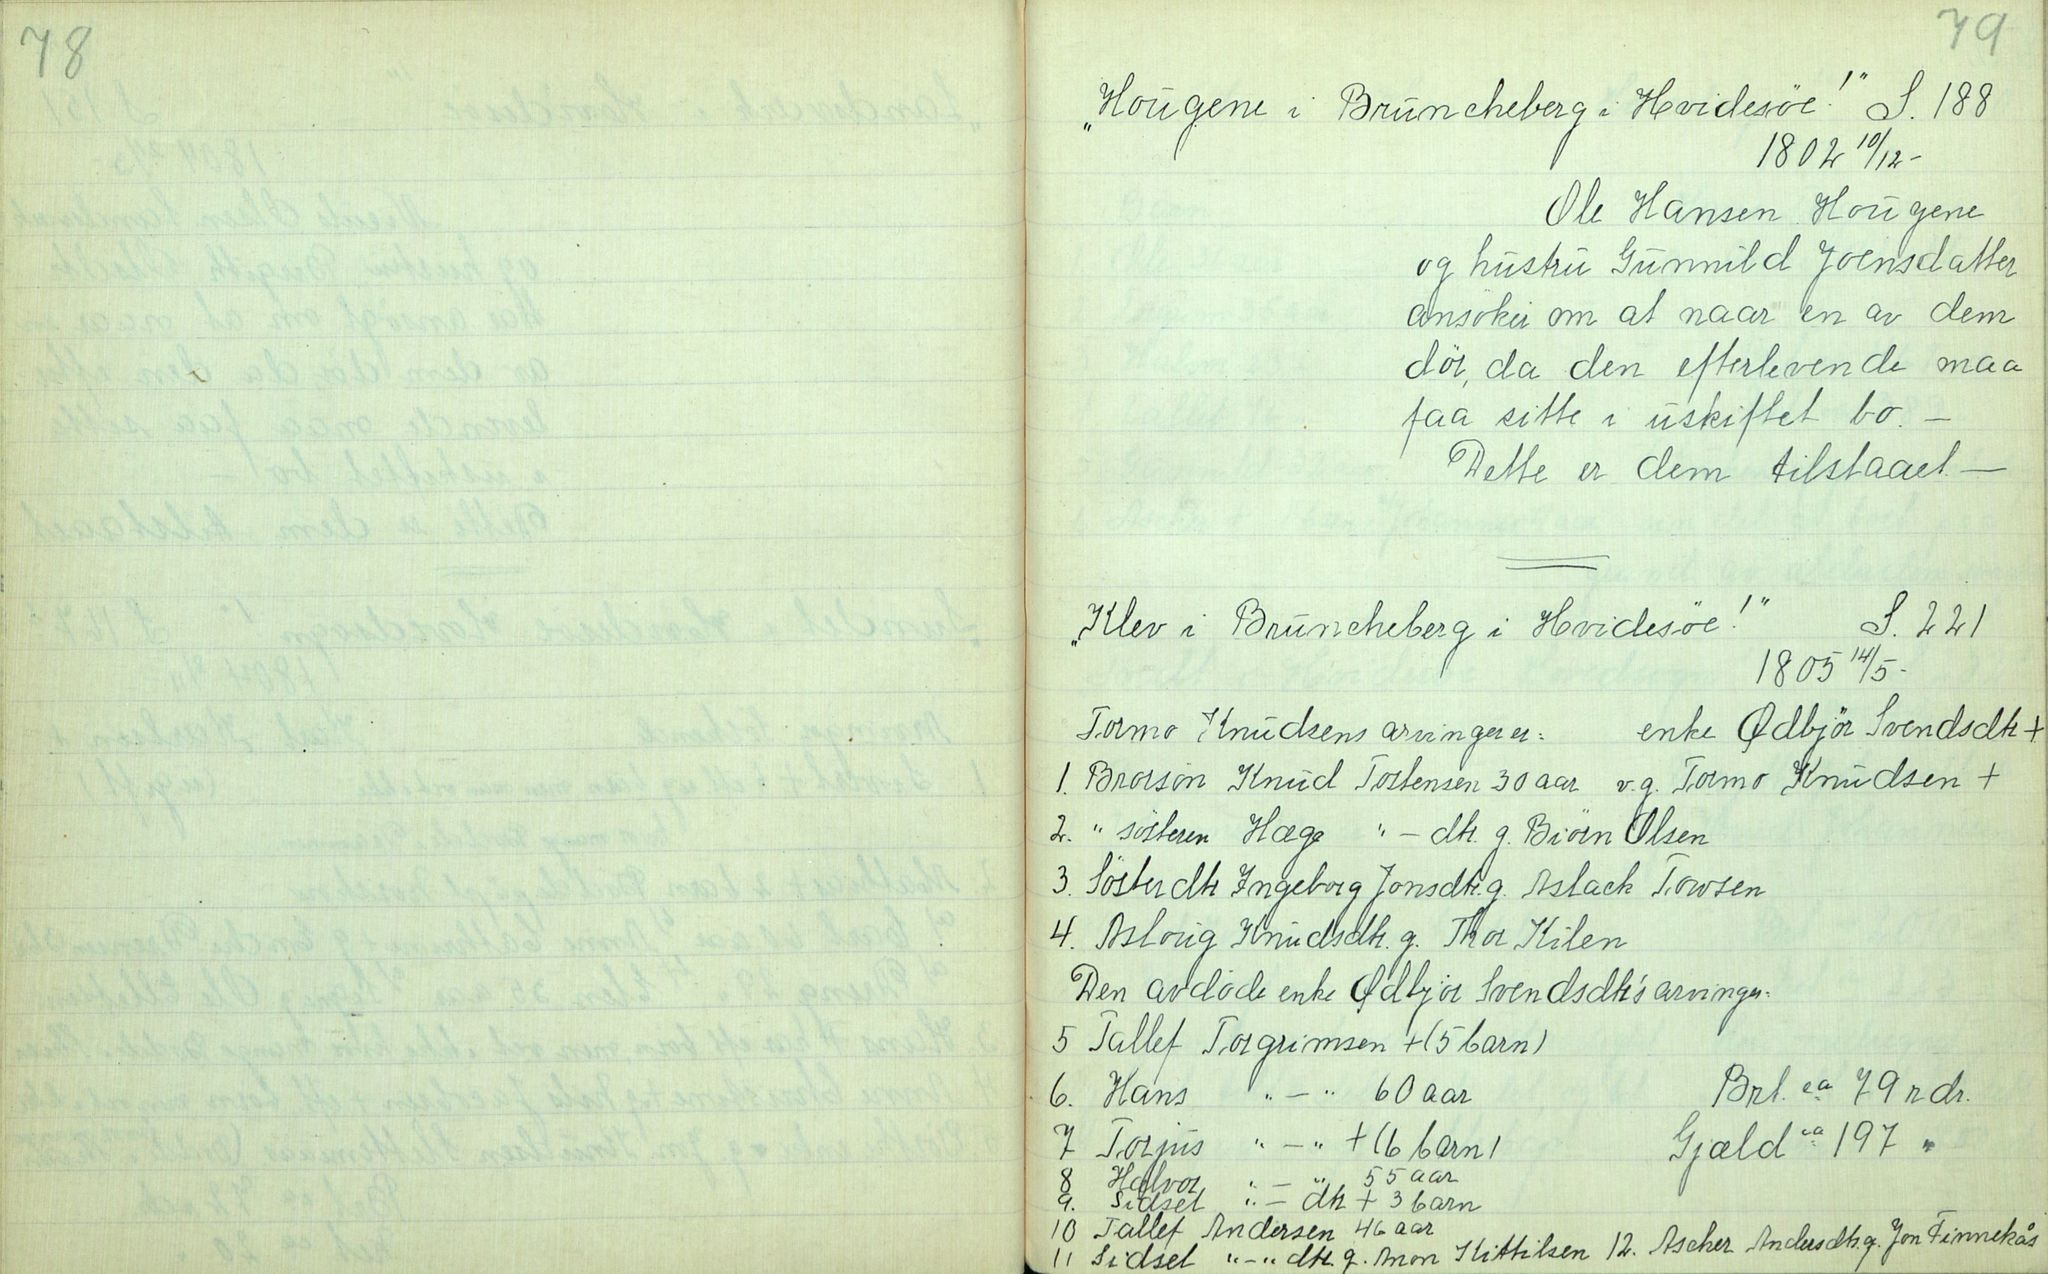 78
79
"Hougene i Bruncheberg i Hvidesöe!" S. 188
1802 10/12-
Ole Hansen Hougene
og hustru Gunnild Joensdatter
ansöker om at naar en av dem
dör, da den efterlevende maa
faa sitte i uskiftet bo. -
Dette er dem tilstaaet -
"Klev i Bruncheberg i Hvidesöe!" S. 221
1805 14/5-
Tormo Knudsens arvinger er: enke Ødbjör Svendsdtr +
1. Brorsön Knud Tostensen 30 aar v.g. Tormo Knudsen +
2. " sösteren Hæge " - dtr. g. Biörn Olsen
3. Sösterdtr Ingeborg Jonsdtr. g. Aslack Towsen
4. Asloug Knudsdtr. g. Thor Kilen
Den avdöde enke Ødbjör Svendsdtr's arvinger:
5 Tallef Torgrimsen + (5 barn)
6. Hans " - " 60 aar Brt. ca 79 rdr.
7 Torjus " - " + (6 barn) Gjæld ca 197 "
8 Halvor " - " 55 aar
9. Sidsel " - dtr + 3 barn
10 Tallef Andersen 46 aar
11 Sidsel " - " dtr. g. Anon Kittilsen 12. Ascher Andersdtr. g. Jon Finnekås